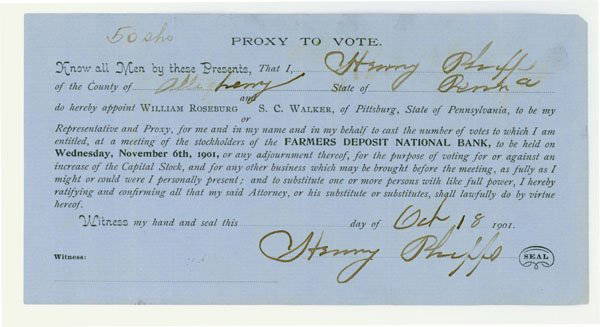 50 shs
PROXY TO VOTE.
Know all Men by these Presents, That I, Henry Phipps
of the County of Allegheny State of Penna
do hereby appoint WILLIAM ROSEBURG and or S. C. WALKER, of Pittsburg, State of Pennsylvania, to be my
Representative and Proxy, for me and in my name and in my behalf to cast the number of votes to which I am
entitled, at a meeting of the stockholders of the FARMERS DEPOSIT NATIONAL BANK, to be held on
Wednesday, November 6th, 1901, or any adjournment thereof, for the purpose of voting for or against an
increase of the Capital Stock, and for any other business which may be brought before the meeting, as fully as I
might or could were I personally present; and to substitute one or more persons with like full power, I hereby
ratifying and confirming all that my said Attorney, or his substitute or substitutes, shall lawfully do by virtue
hereof.
Witness my hand and seal this day of Oct 18 1901.
Henry Phipps SEAL
Witness: